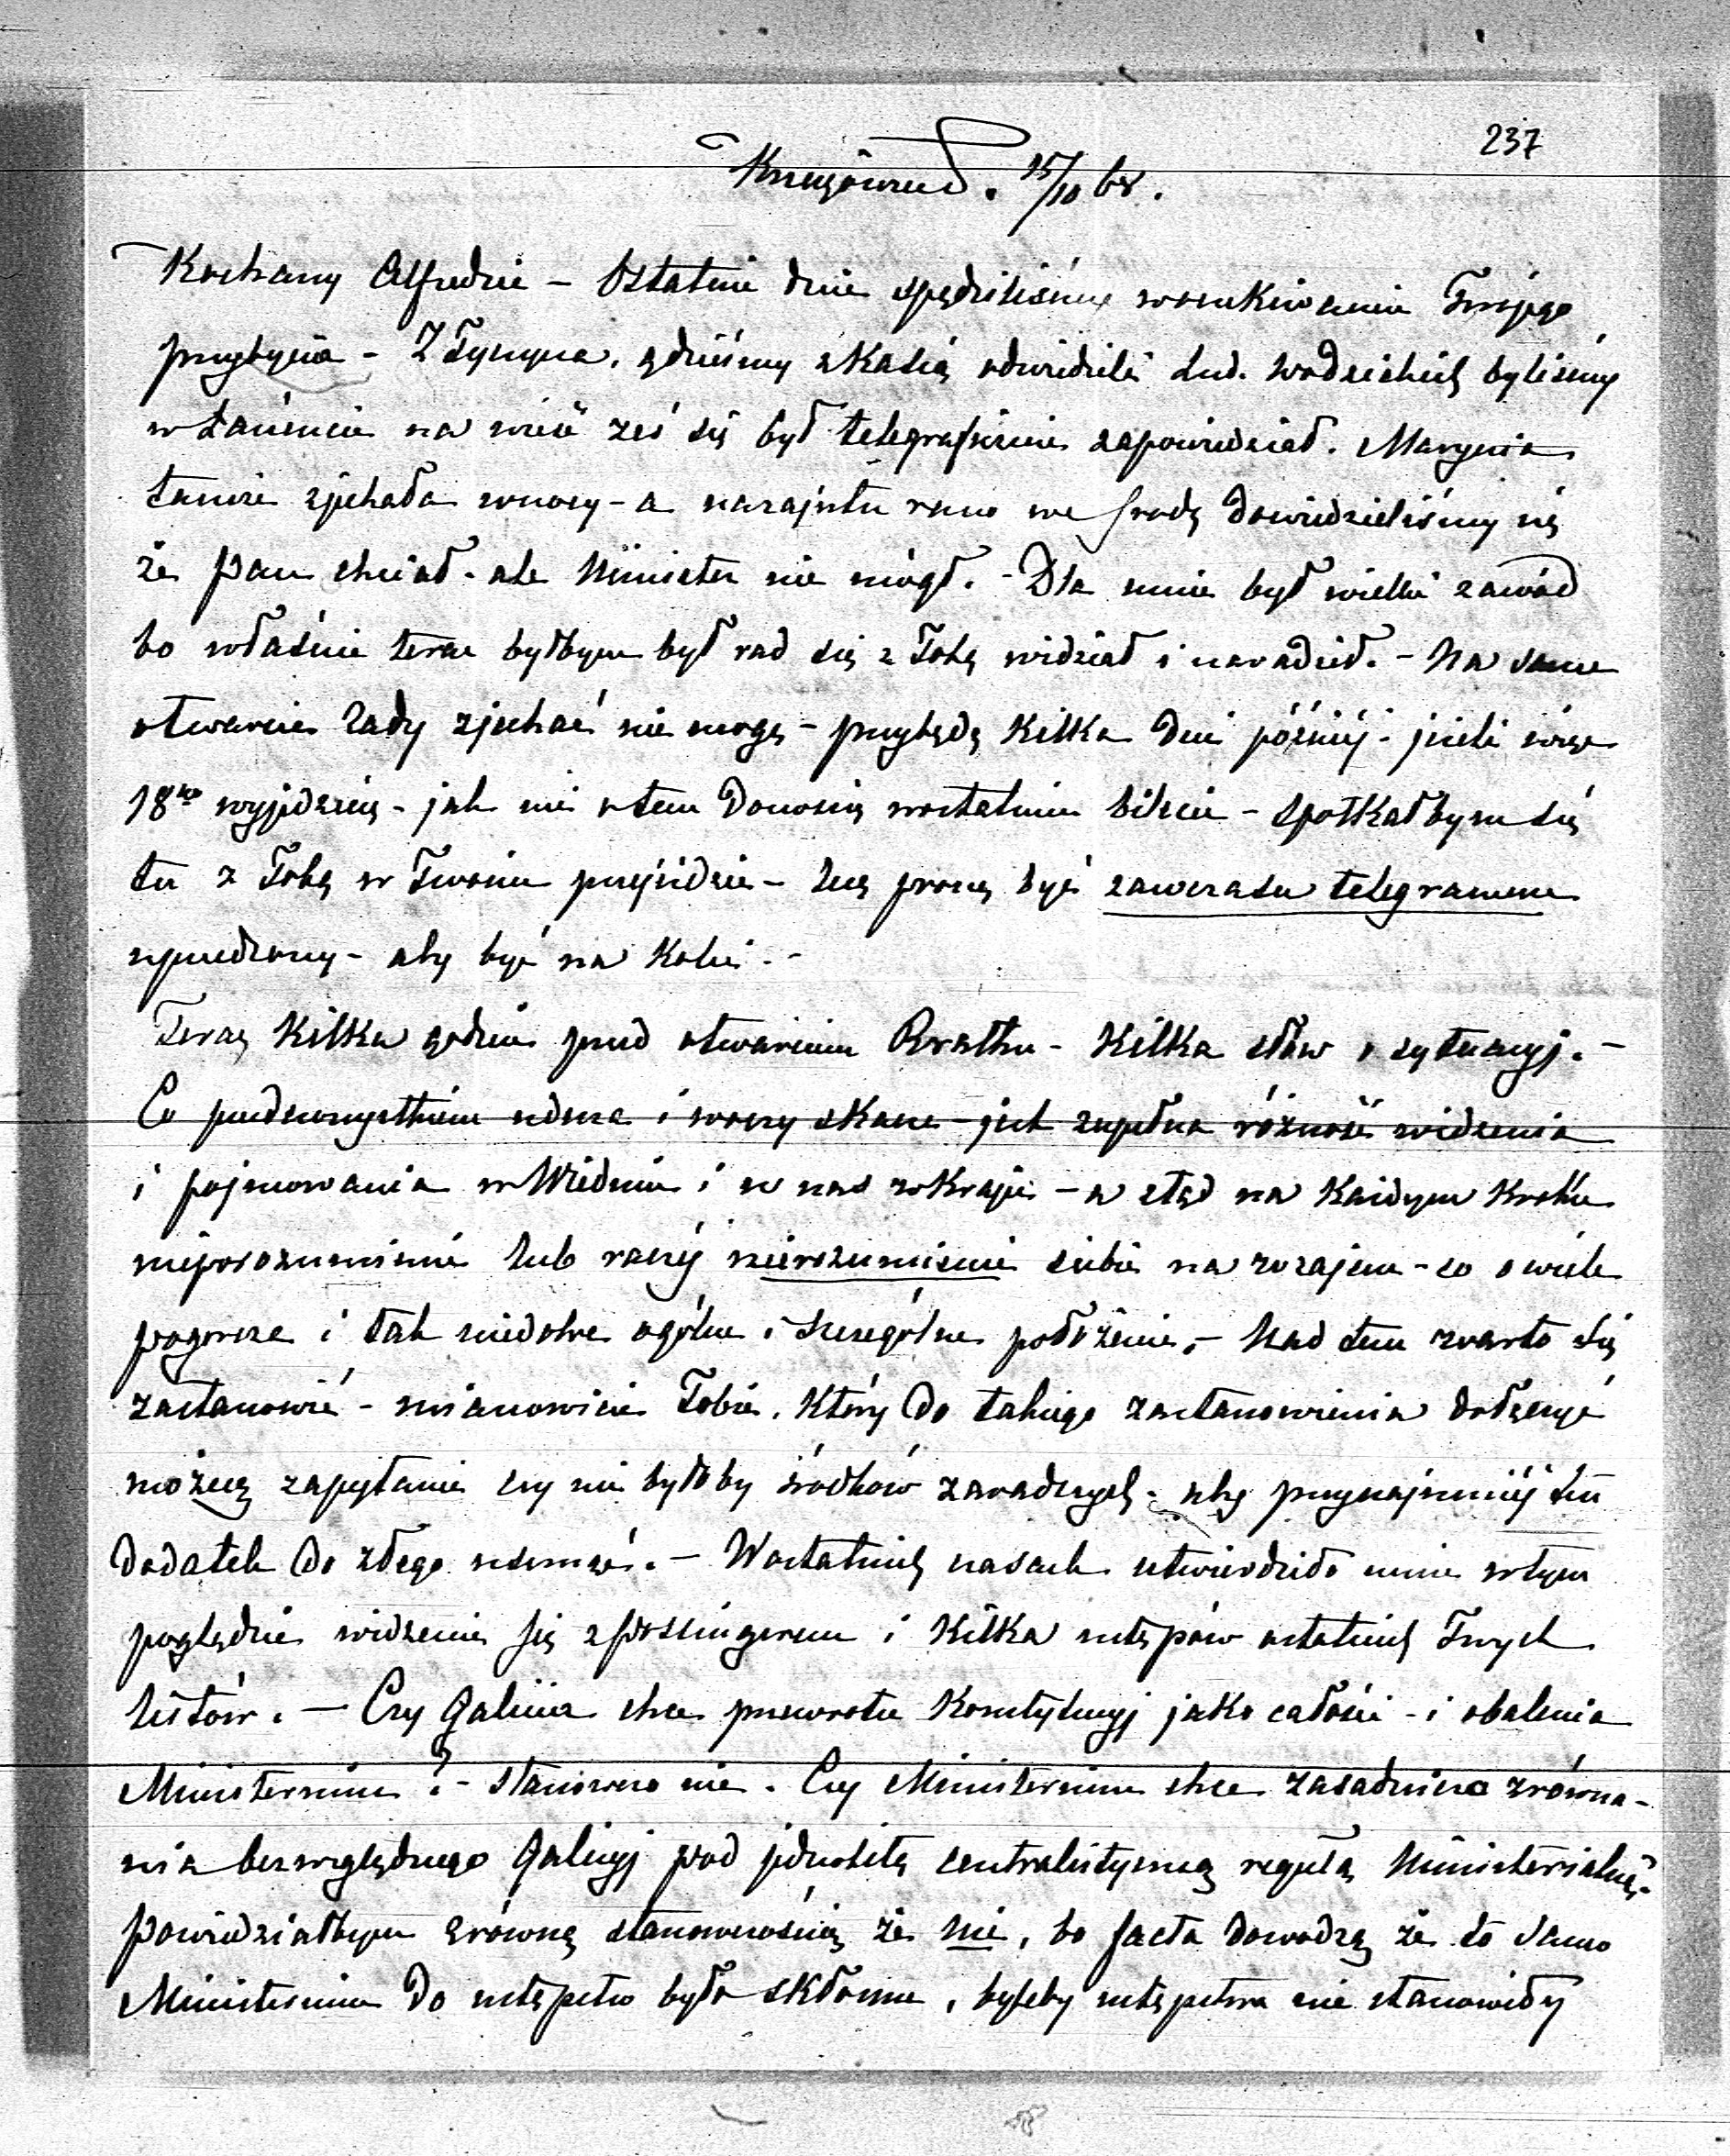 237
Krzeszowice. 15/10 68.
Kochany Alfredzie – Ostatnie dnie spędziliśmy woczekiwaniu Twojego
przybycia – Z Tyczyna, gdzieśmy z Kasią odwiedzili Lud. Wodzickich byliśmy
w Łańcucie na wieść żeś się był telegraficznie zapowiedział. Marynia
tamże zjechała wnocy – a nazajutrz rano we środę dowiedzieliśmy się
że Pan chciał – ale Minister nie mógł. – Dla mnie był wielki zawód
bo właśnie teraz byłbym był rad się z Tobą widział i naradził. – Na samo
otwarcie Rady zjechać nie mogę – przybędę kilka dni później – jeżeli więc
18go wyjedziesz – jak mi o tem donosisz wostatnim bilecie – spotkałbym się
tu z Tobą w Twoim przejeździe – lecz proszę być zawczasu telegramem
uprzedzony – aby być na kolei. –
Teraz kilka godzin przed otwarciem Rrathu – kilka słów o sytuacyj. –
Co przedewszystkiem uderza i woczy skacze – jest zupełna różność widzenia
i pojmowania w Wiedniu i u nas wKraju – a stąd na każdym kroku
nieporozumienie lub raczej nierozumienie siebie na wzajem – co o wiele
pogorsza i tak niedobre ogólne i szczególne położenie. – Nad tem warto się
zastanowić – mianowicie Tobie, który do takiego zastanowienia dołączyć
możesz zapytanie czy nie byłoby środków zaradczych – aby przynajmniej ten
dodatek do złego usunąć. – Wostatnich czasach utwierdziło mnie wtym
poglądzie widzenie się z Possingerem i kilka ustępów ostatnich Twych
listów. – Czy Galicia chce przewrotu Konstytucyj jako całości – i obalenia
Ministerium? – stanowczo nie. Czy Ministerium chce zasadniczo zrówna-
nia bezwzględnego Galicyj pod jednolitą centralistyczną regułą Ministerialną –
Powiedziałbym zrówną stanowczością że nie, bo facta dowodzą że to samo
Ministerium do ustępstw było skłonne, byleby ustępstwa nie stanowiły